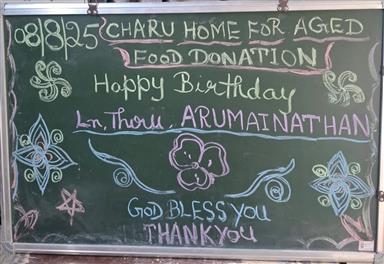 08/8/25 CHARU HOME FOR AGED
FOOD DONATION
Happy Birthday
Ln, Thiru, ARUMAINATHAN
GOD BLESS YOU
THANKYOU